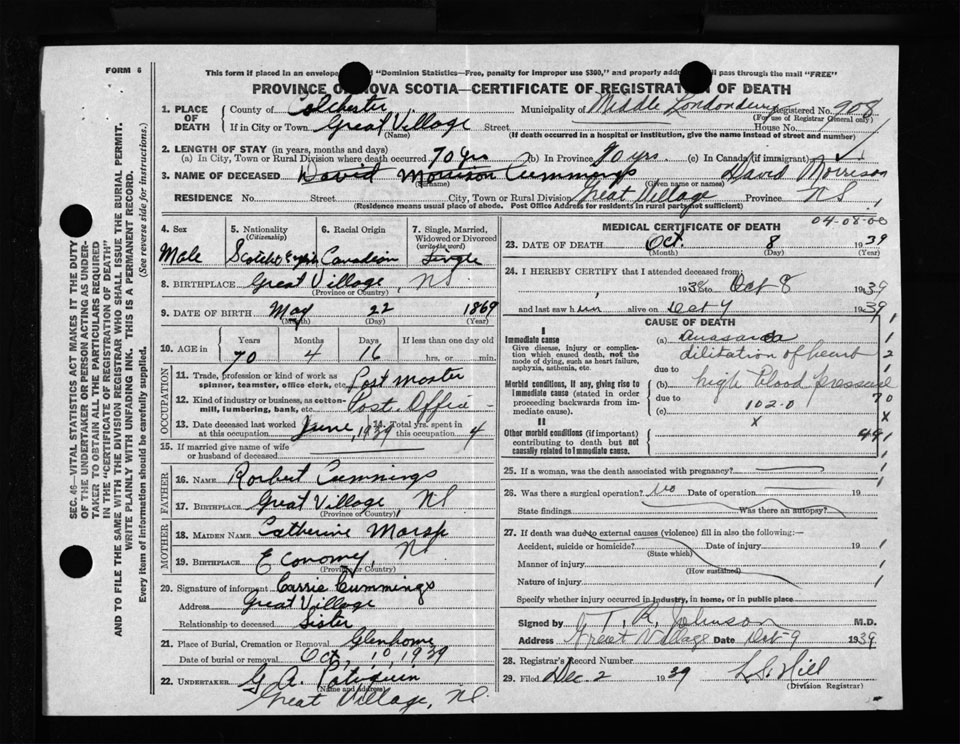 FORM 6
This form if placed in an envelope "Dominion Statistics—Free, penalty for improper use $300," and properly addressed pass through the mail "FREE"
PROVINCE OF NOVA SCOTIA—CERTIFICATE OF REGISTRATION OF DEATH
1. PLACE OF DEATH County of Colchester Municipality of Middle Londonderry Registered No. 908
(For use of Registrar General only)
If in City or Town Great Village Street House No.
(Name) (If death occurred in a hospital or institution, give the name instead of street and number)
2. LENGTH OF STAY (in years, months and days)
(a) In City, Town or Rural Division where death occurred 70 yrs (b) In Province 70 yrs. (c) In Canada (if immigrant)
3. NAME OF DECEASED David Morrison Cummings David Morrison
(Surname) (Given name or names)
RESIDENCE No. Street City, Town or Rural Division Great Village Province NS
(Residence means usual place of abode. Post Office Address for residents in rural parts not sufficient)
04-08-00
4. Sex Male
5. Nationality (Citizenship)
6. Racial Origin Canadian
7. Single, Married, Widowed or Divorced (write the word) Single
8. BIRTHPLACE Great Village, NS
(Province or Country)
9. DATE OF BIRTH May 22 1869
(Month) (Day) (Year)
10. AGE in Years Months Days If less than one day old
70 4 16 hrs. or min.
OCCUPATION
11. Trade, profession or kind of work as spinner, teamster, office clerk, etc. Post master
12. Kind of industry or business, as cotton-mill, lumbering, bank, etc. Post Office
13. Date deceased last worked at this occupation June, 1939 14. Total yrs. spent in this occupation 4
15. If married give name of wife or husband of deceased
FATHER
16. NAME Robert Cummings
17. BIRTHPLACE Great Village NS
(Province or Country)
MOTHER
18. MAIDEN NAME Catherine
19. BIRTHPLACE Economy, NS
(Province or Country)
20. Signature of informant Carrie Cummings
Address Great Village
Relationship to deceased Sister
21. Place of Burial, Cremation or Removal Glenholme
Date of burial or removal Oct, 10, 1939
22. UNDERTAKER G. A.
(Name and address)
Great Village, NS
MEDICAL CERTIFICATE OF DEATH
23. DATE OF DEATH Oct 8 1939
(Month) (Day) (Year)
24. I HEREBY CERTIFY that I attended deceased from:
193 to Oct 8 1939
and last saw him alive on Oct 7 1939
CAUSE OF DEATH
I
Immediate cause
Give disease, injury or complication which caused death, not the mode of dying, such as heart failure, asphyxia, asthenia, etc.
(a)
dilitation of heart
due to
Morbid conditions, if any, giving rise to immediate cause (stated in order proceeding backwards from immediate cause).
(b) high blood pressure
due to
(c) 102-0
x
II
Other morbid conditions (if important) contributing to death but not causally related to immediate cause.
25. If a woman, was the death associated with pregnancy?
26. Was there a surgical operation? No Date of operation 19
State findings Was there an autopsy?
27. If death was due to external causes (violence) fill in also the following:
Accident, suicide or homicide? Date of injury 19
(State which)
Manner of injury
(How sustained)
Nature of injury
Specify whether injury occurred in industry, in home, or in public place
Signed by T. R. Johnson M.D.
Address Great Village Date Oct-9 1939
28. Registrar's Record Number
29. Filed Dec 2 1939 L. S. Hill
(Division Registrar)
SEC. 46—VITAL STATISTICS ACT MAKES IT THE DUTY
OF THE UNDERTAKER OR PERSON ACTING AS UNDER-
TAKER TO OBTAIN ALL THE PARTICULARS REQUIRED
IN THE "CERTIFICATE OF REGISTRATION OF DEATH"
AND TO FILE THE SAME WITH THE DIVISION REGISTRAR WHO SHALL ISSUE THE BURIAL PERMIT.
WRITE PLAINLY WITH UNFADING INK. THIS IS A PERMANENT RECORD.
Every item of information should be carefully supplied. (See reverse side for instructions.)